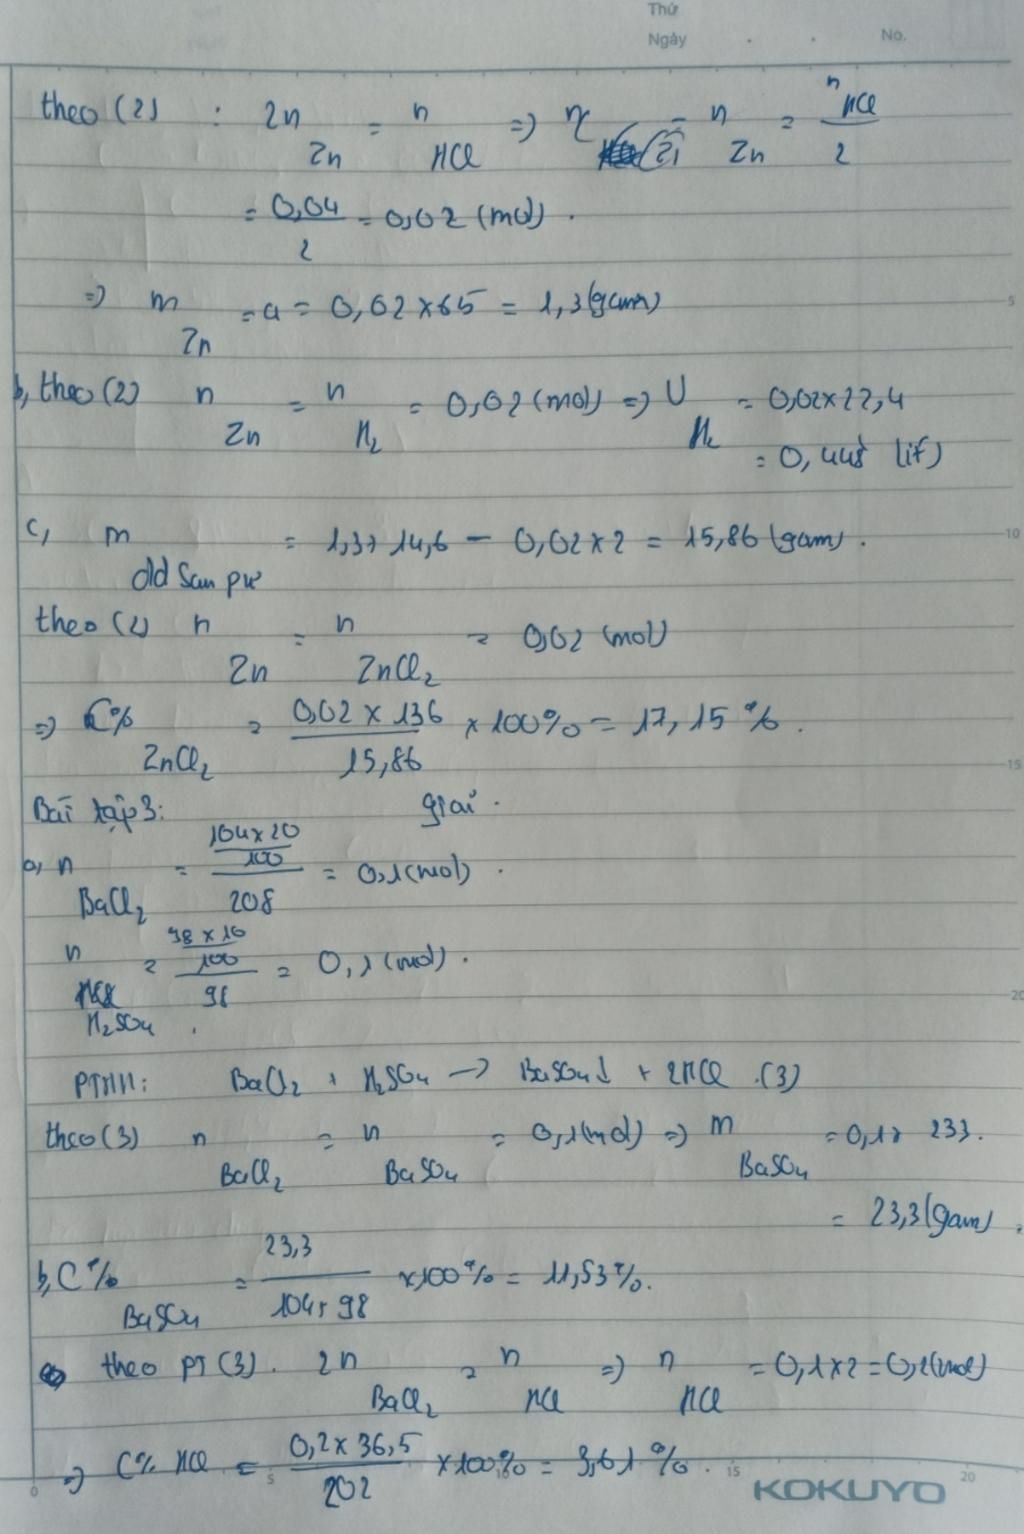 Thứ
Ngày . . No.
theo (2) : 2n Zn = n HCl => n Zn = n HCl / 2
= 0,04 / 2 = 0,02 (mol).
=> m Zn = a = 0,02 x 65 = 1,3 (gam)
b, theo (2) n Zn = n H2 = 0,02 (mol) => V H2 = 0,02 x 22,4
= 0,448 lít)
c, m dd sau pư = 1,3 + 14,6 - 0,02 x 2 = 15,86 (gam).
theo (2) n Zn = n ZnCl2 = 0,02 (mol)
=> C% ZnCl2 = 0,02 x 136 / 15,86 x 100% = 17,15 %.
Bài tập 3: giải.
a, n BaCl2 = 104 x 20 / 100 / 208 = 0,1 (mol).
n H2SO4 = 98 x 10 / 100 / 98 = 0,1 (mol).
PTHH: BaCl2 + H2SO4 -> BaSO4↓ + 2HCl .(3)
theo (3) n BaCl2 = n BaSO4 = 0,1 (mol) => m BaSO4 = 0,1 x 233.
= 23,3 (gam).
b, C% BaSO4 = 23,3 / 104 + 98 x 100% = 11,53%.
theo PT (3). 2n BaCl2 = n HCl => n HCl = 0,1 x 2 = 0,2 (mol)
=> C% HCl = 0,2 x 36,5 / 202 x 100% = 3,61 %.
KOKUYO